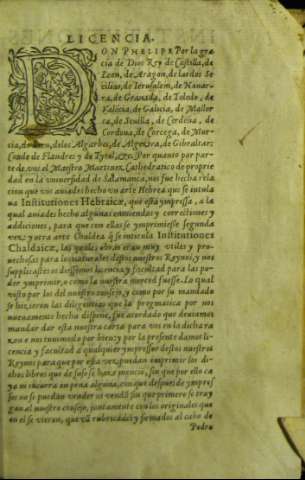 LICENCIA.
DON PHELIPE Por la gra
cia de Dios Rey de Castilla, de
Leon, de Aragon, de las dos Se
cilias, de Ierusalem, de Nauar
ra, de Granada, de Toledo, de
Valẽcia, de Galicia, de Mallor
ca, de Seuilla, de Cerdeña, de
Corduua, de Corcega, de Mur-
cia, de Iaen, de los Algarbes, de Algezira, de Gibraltar:
Conde de Flandres y de Tyrol, &c. Por quanto por par
te de vos el Maestro Martinez, Cathedratico de proprie
dad en la vniuersidad de Salamanca, nos fue hecha rela
cion que vos auiades hecho vn arte Hebrea que se intitula
ua Institutiones Hebraicæ, que està impressa, a la
qual auiades hecho algunas emiendas y correctiones y
addiciones, para que con ellas se ymprimiesse segunda
vez: y otra arte Chaldea q̃ se intitula Institutiones
Chaldaicæ, las quales obras eran muy vtiles y proue-
chosas para los naturales destos nuestros Reynos, y nos
supplicastes os diessemos licencia y facultad para las po-
der ymprimir, o como la nuestra merced fuesse. Lo qual
visto por los del nuestro consejo, y como por su mandado
se hizieron las diligencias que la pregmatica por nos
nueuamente hecha dispone, fue acordado que deuiamos
mandar dar esta nuestra carta para vos en la dicha ra
zon: e nos tuuimoslo por bien: y por la presente damos li-
cencia y facultad a qualquier impressor destos nuestros
Reynos para que por esta vez puedan imprimir los di-
chos libros que de suso se haze mencio, sin que por ello ca
ya ni incurra en pena alguna, con que despues de ympres
sos no se puedan vender ni vendã sin que primero se tray
gan al nuestro consejo, juntamente con los originales que
en el se vieron, que vã rubricados y firmados al cabo de
Pedro